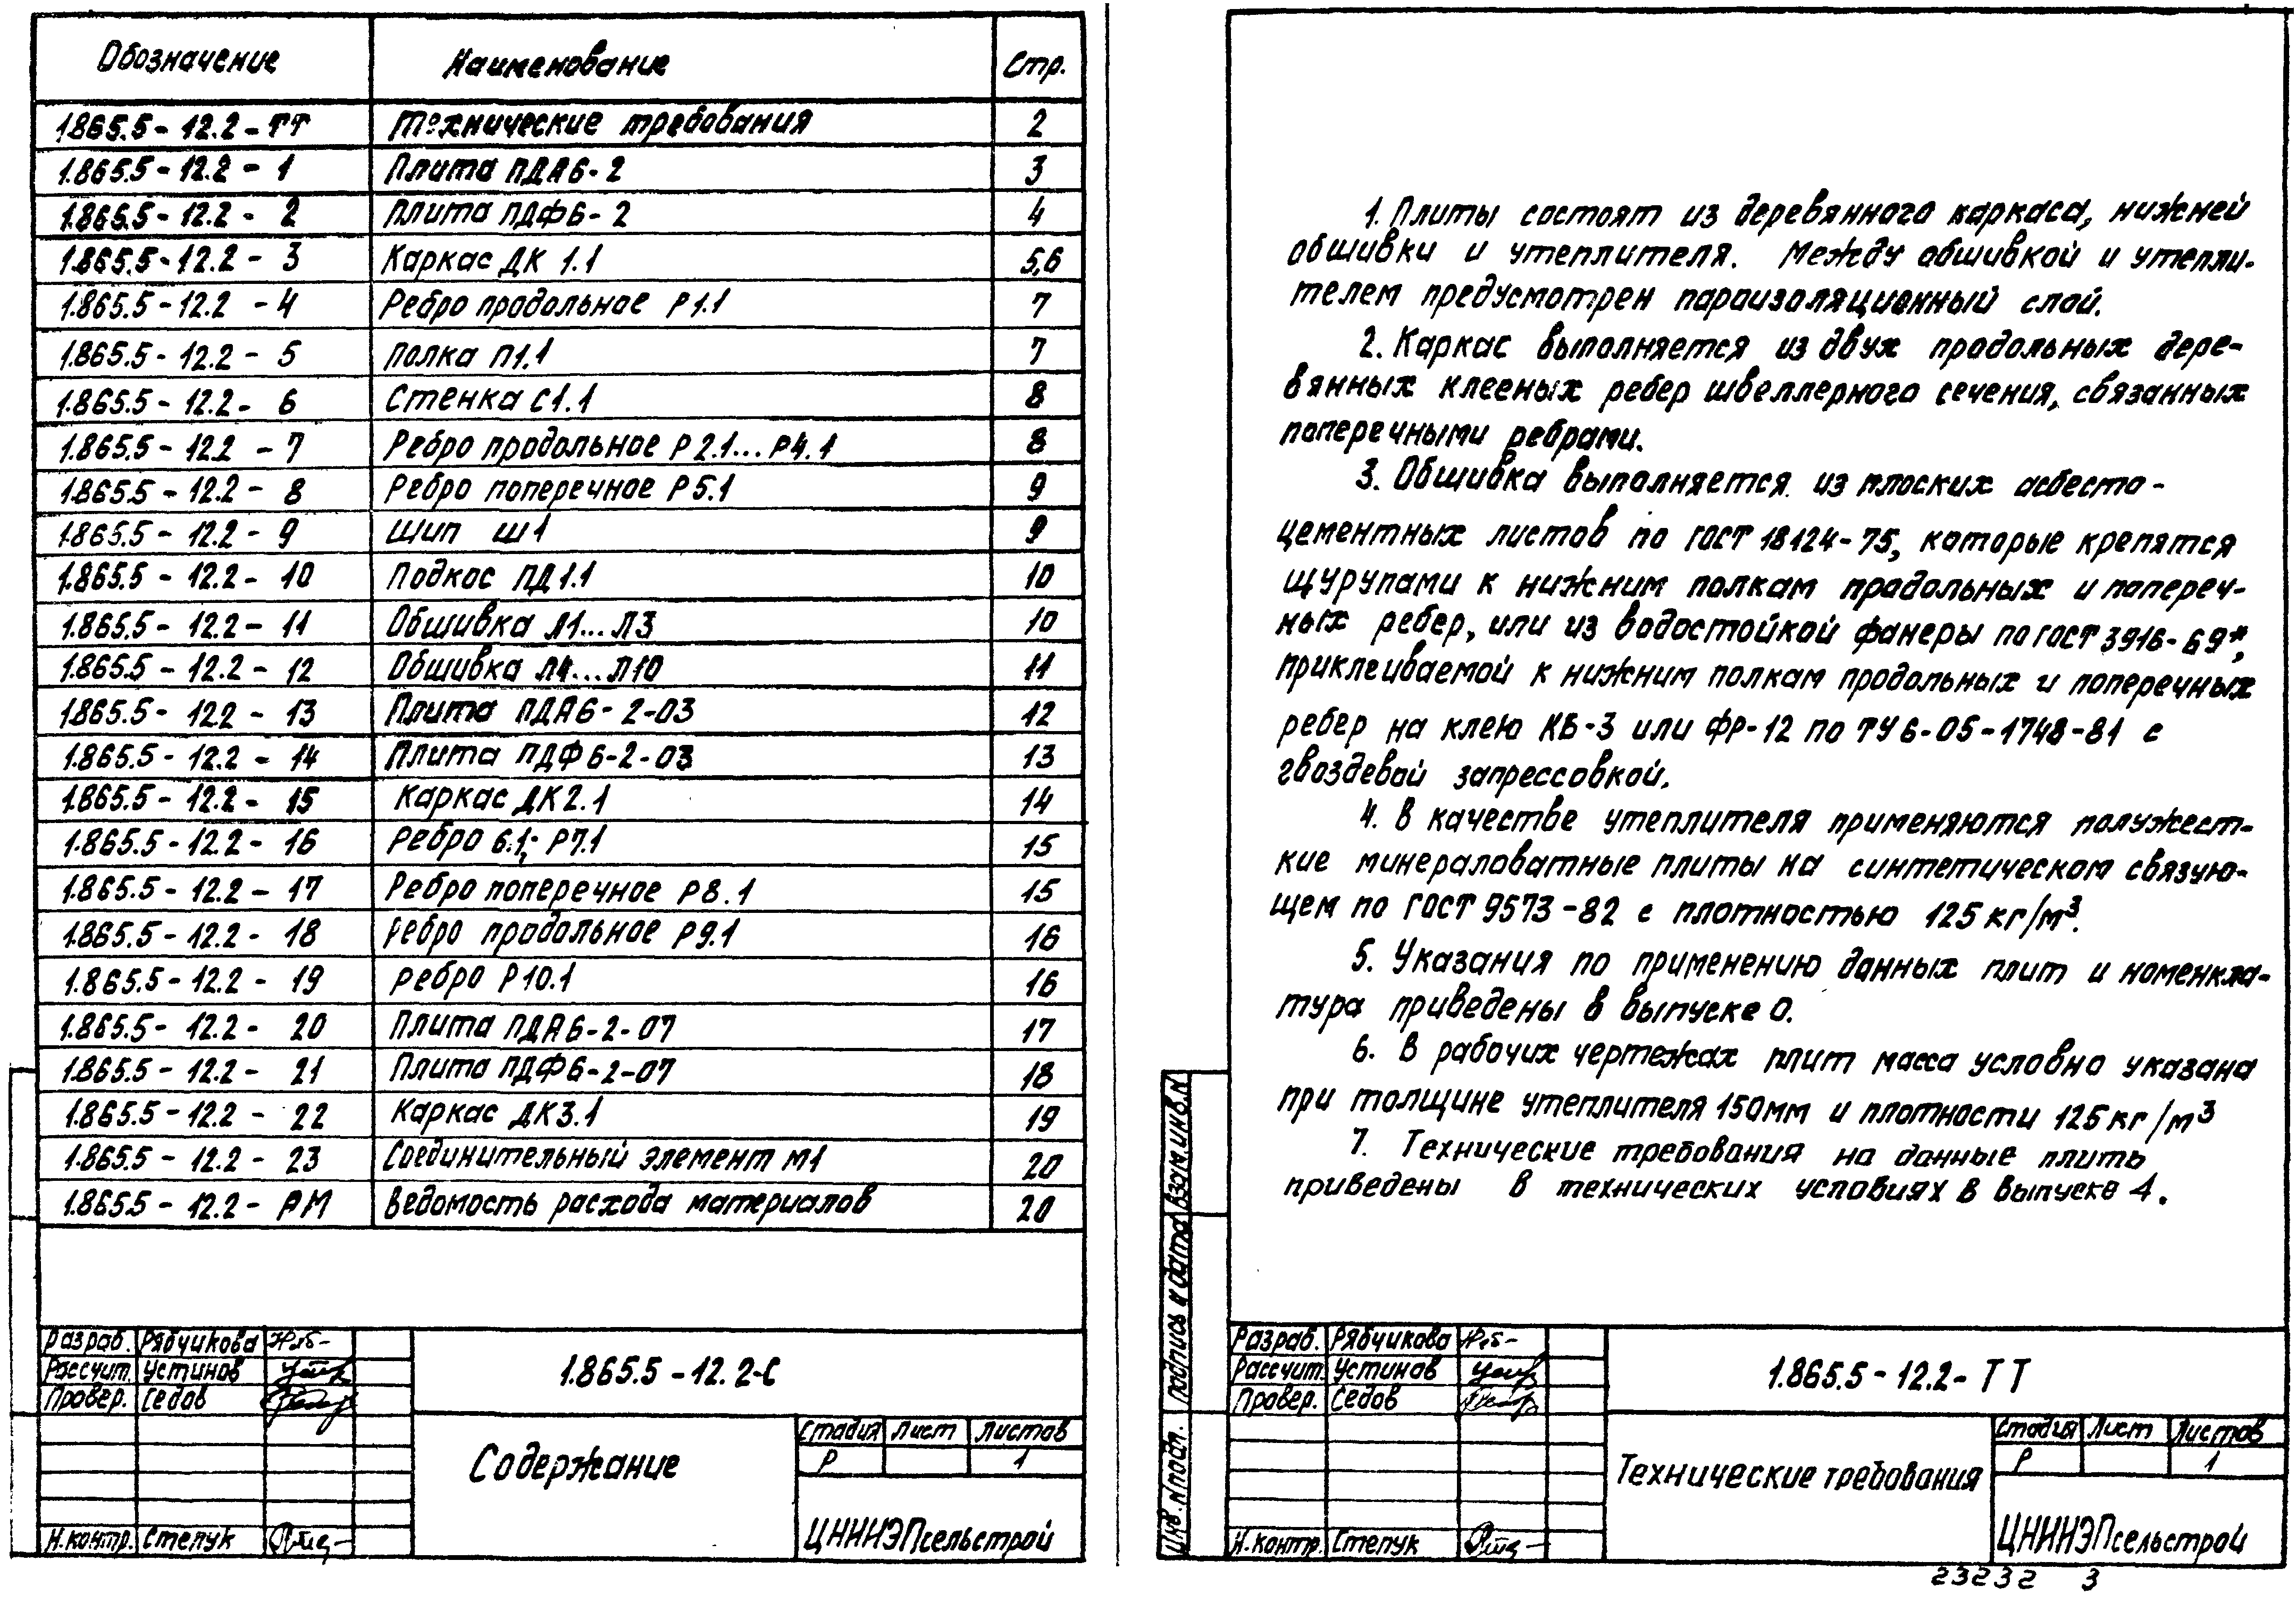 Обозначение Наименование Стр.
1.865.5-12.2-ТТ Технические требования 2
1.865.5-12.2-1 Плита ПДА6-2 3
1.865.5-12.2-2 Плита ПДФ6-2 4
1.865.5-12.2-3 Каркас ДК 1.1 5,6
1.865.5-12.2-4 Ребро продольное Р1.1 7
1.865.5-12.2-5 Полка П1.1 7
1.865.5-12.2-6 Стенка С1.1 8
1.865.5-12.2-7 Ребро продольное Р2.1...Р4.1 8
1.865.5-12.2-8 Ребро поперечное Р5.1 9
1.865.5-12.2-9 Шип Ш1 9
1.865.5-12.2-10 Подкос ПД1.1 10
1.865.5-12.2-11 Обшивка Л1...Л3 10
1.865.5-12.2-12 Обшивка Л4...Л10 11
1.865.5-12.2-13 Плита ПДА6-2-03 12
1.865.5-12.2-14 Плита ПДФ6-2-03 13
1.865.5-12.2-15 Каркас ДК2.1 14
1.865.5-12.2-16 Ребро 6.1; Р7.1 15
1.865.5-12.2-17 Ребро поперечное Р8.1 15
1.865.5-12.2-18 Ребро продольное Р9.1 16
1.865.5-12.2-19 Ребро Р10.1 16
1.865.5-12.2-20 Плита ПДА6-2-07 17
1.865.5-12.2-21 Плита ПДФ6-2-07 18
1.865.5-12.2-22 Каркас ДК3.1 19
1.865.5-12.2-23 Соединительный элемент М1 20
1.865.5-12.2-РМ Ведомость расхода материалов 20
Разраб. Рябчикова
Рассчит. Устинов
Провер. Седов
Н.контр. Степук
1.865.5-12.2-С
Содержание
Стадия Лист Листов
Р 1
ЦНИИЭПсельстрой
1. Плиты состоят из деревянного каркаса, нижней
обшивки и утеплителя. Между обшивкой и утепли-
телем предусмотрен пароизоляционный слой.
2. Каркас выполняется из двух продольных дере-
вянных клееных ребер швеллерного сечения, связанных
поперечными ребрами.
3. Обшивка выполняется из плоских асбесто-
цементных листов по ГОСТ 18124-75, которые крепятся
щурупами к нижним полкам продольных и попереч-
ных ребер, или из водостойкой фанеры по ГОСТ 3916-69*,
приклеиваемой к нижним полкам продольных и поперечных
ребер на клею КБ-3 или ФР-12 по ТУ 6-05-1748-81 с
гвоздевой запрессовкой.
4. В качестве утеплителя применяются полужест-
кие минераловатные плиты на синтетическом связую-
щем по ГОСТ 9573-82 с плотностью 125 кг/м³.
5. Указания по применению данных плит и номенкла-
тура приведены в выпуске 0.
6. В рабочих чертежах плит масса условно указана
при толщине утеплителя 150мм и плотности 125 кг/м³
7. Технические требования на данные плиты
приведены в технических условиях в выпуске 4.
Инв.N подл. Подпись и дата Взам.инв.N
Разраб. Рябчикова
Рассчит. Устинов
Провер. Седов
Н.контр. Степук
1.865.5-12.2-ТТ
Технические требования
Стадия Лист Листов
Р 1
ЦНИИЭПсельстрой
23232 3